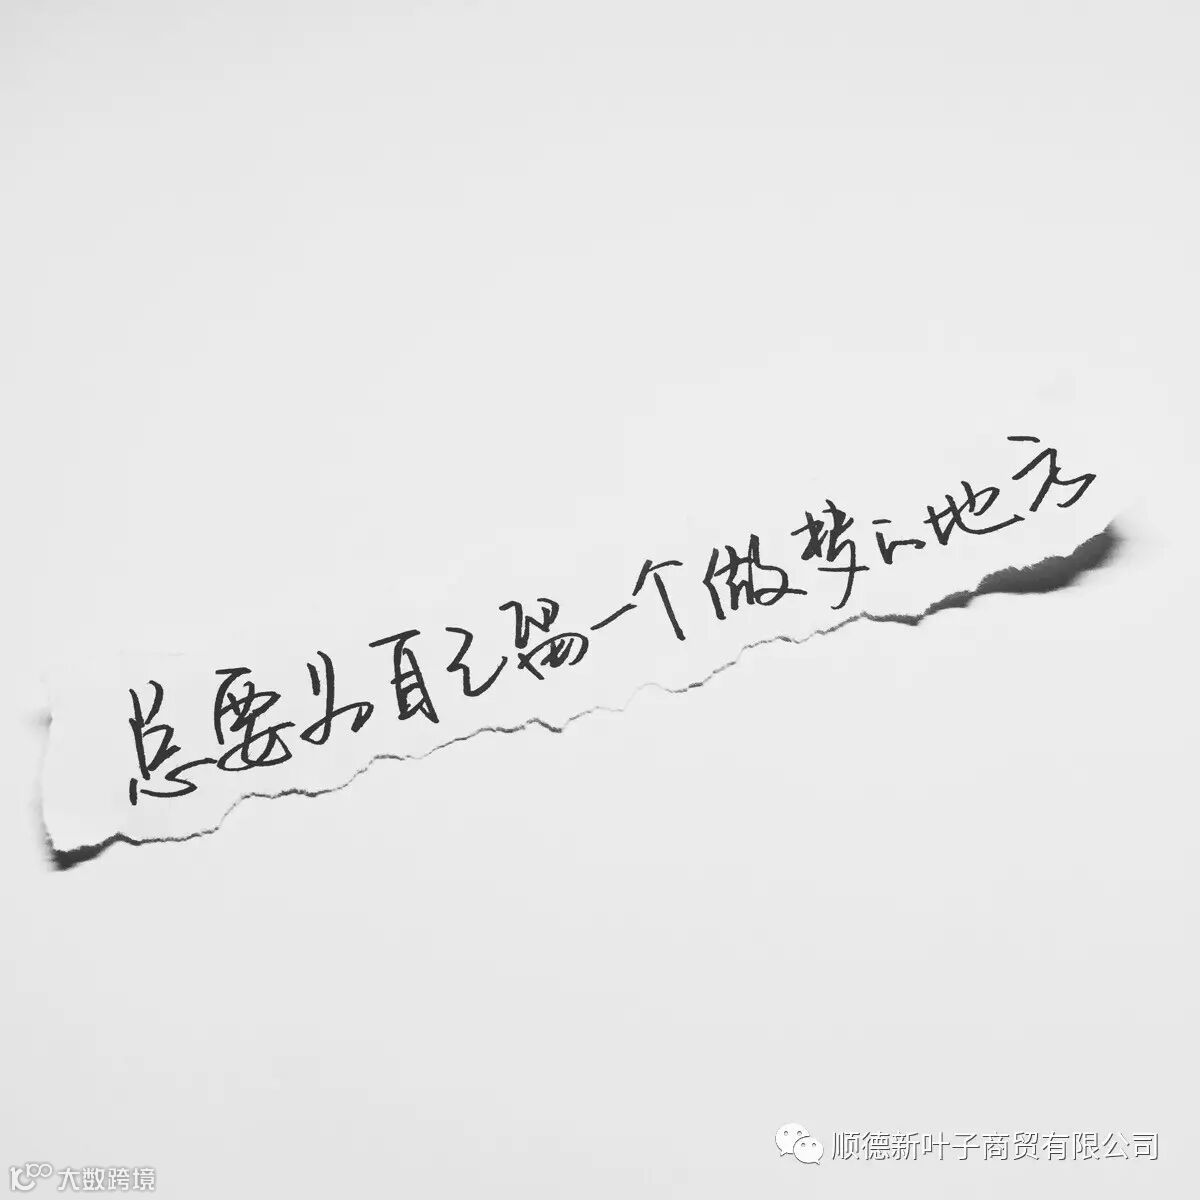 总要为自己留一个做梦的地方
顺德新叶子商贸有限公司
大数跨境